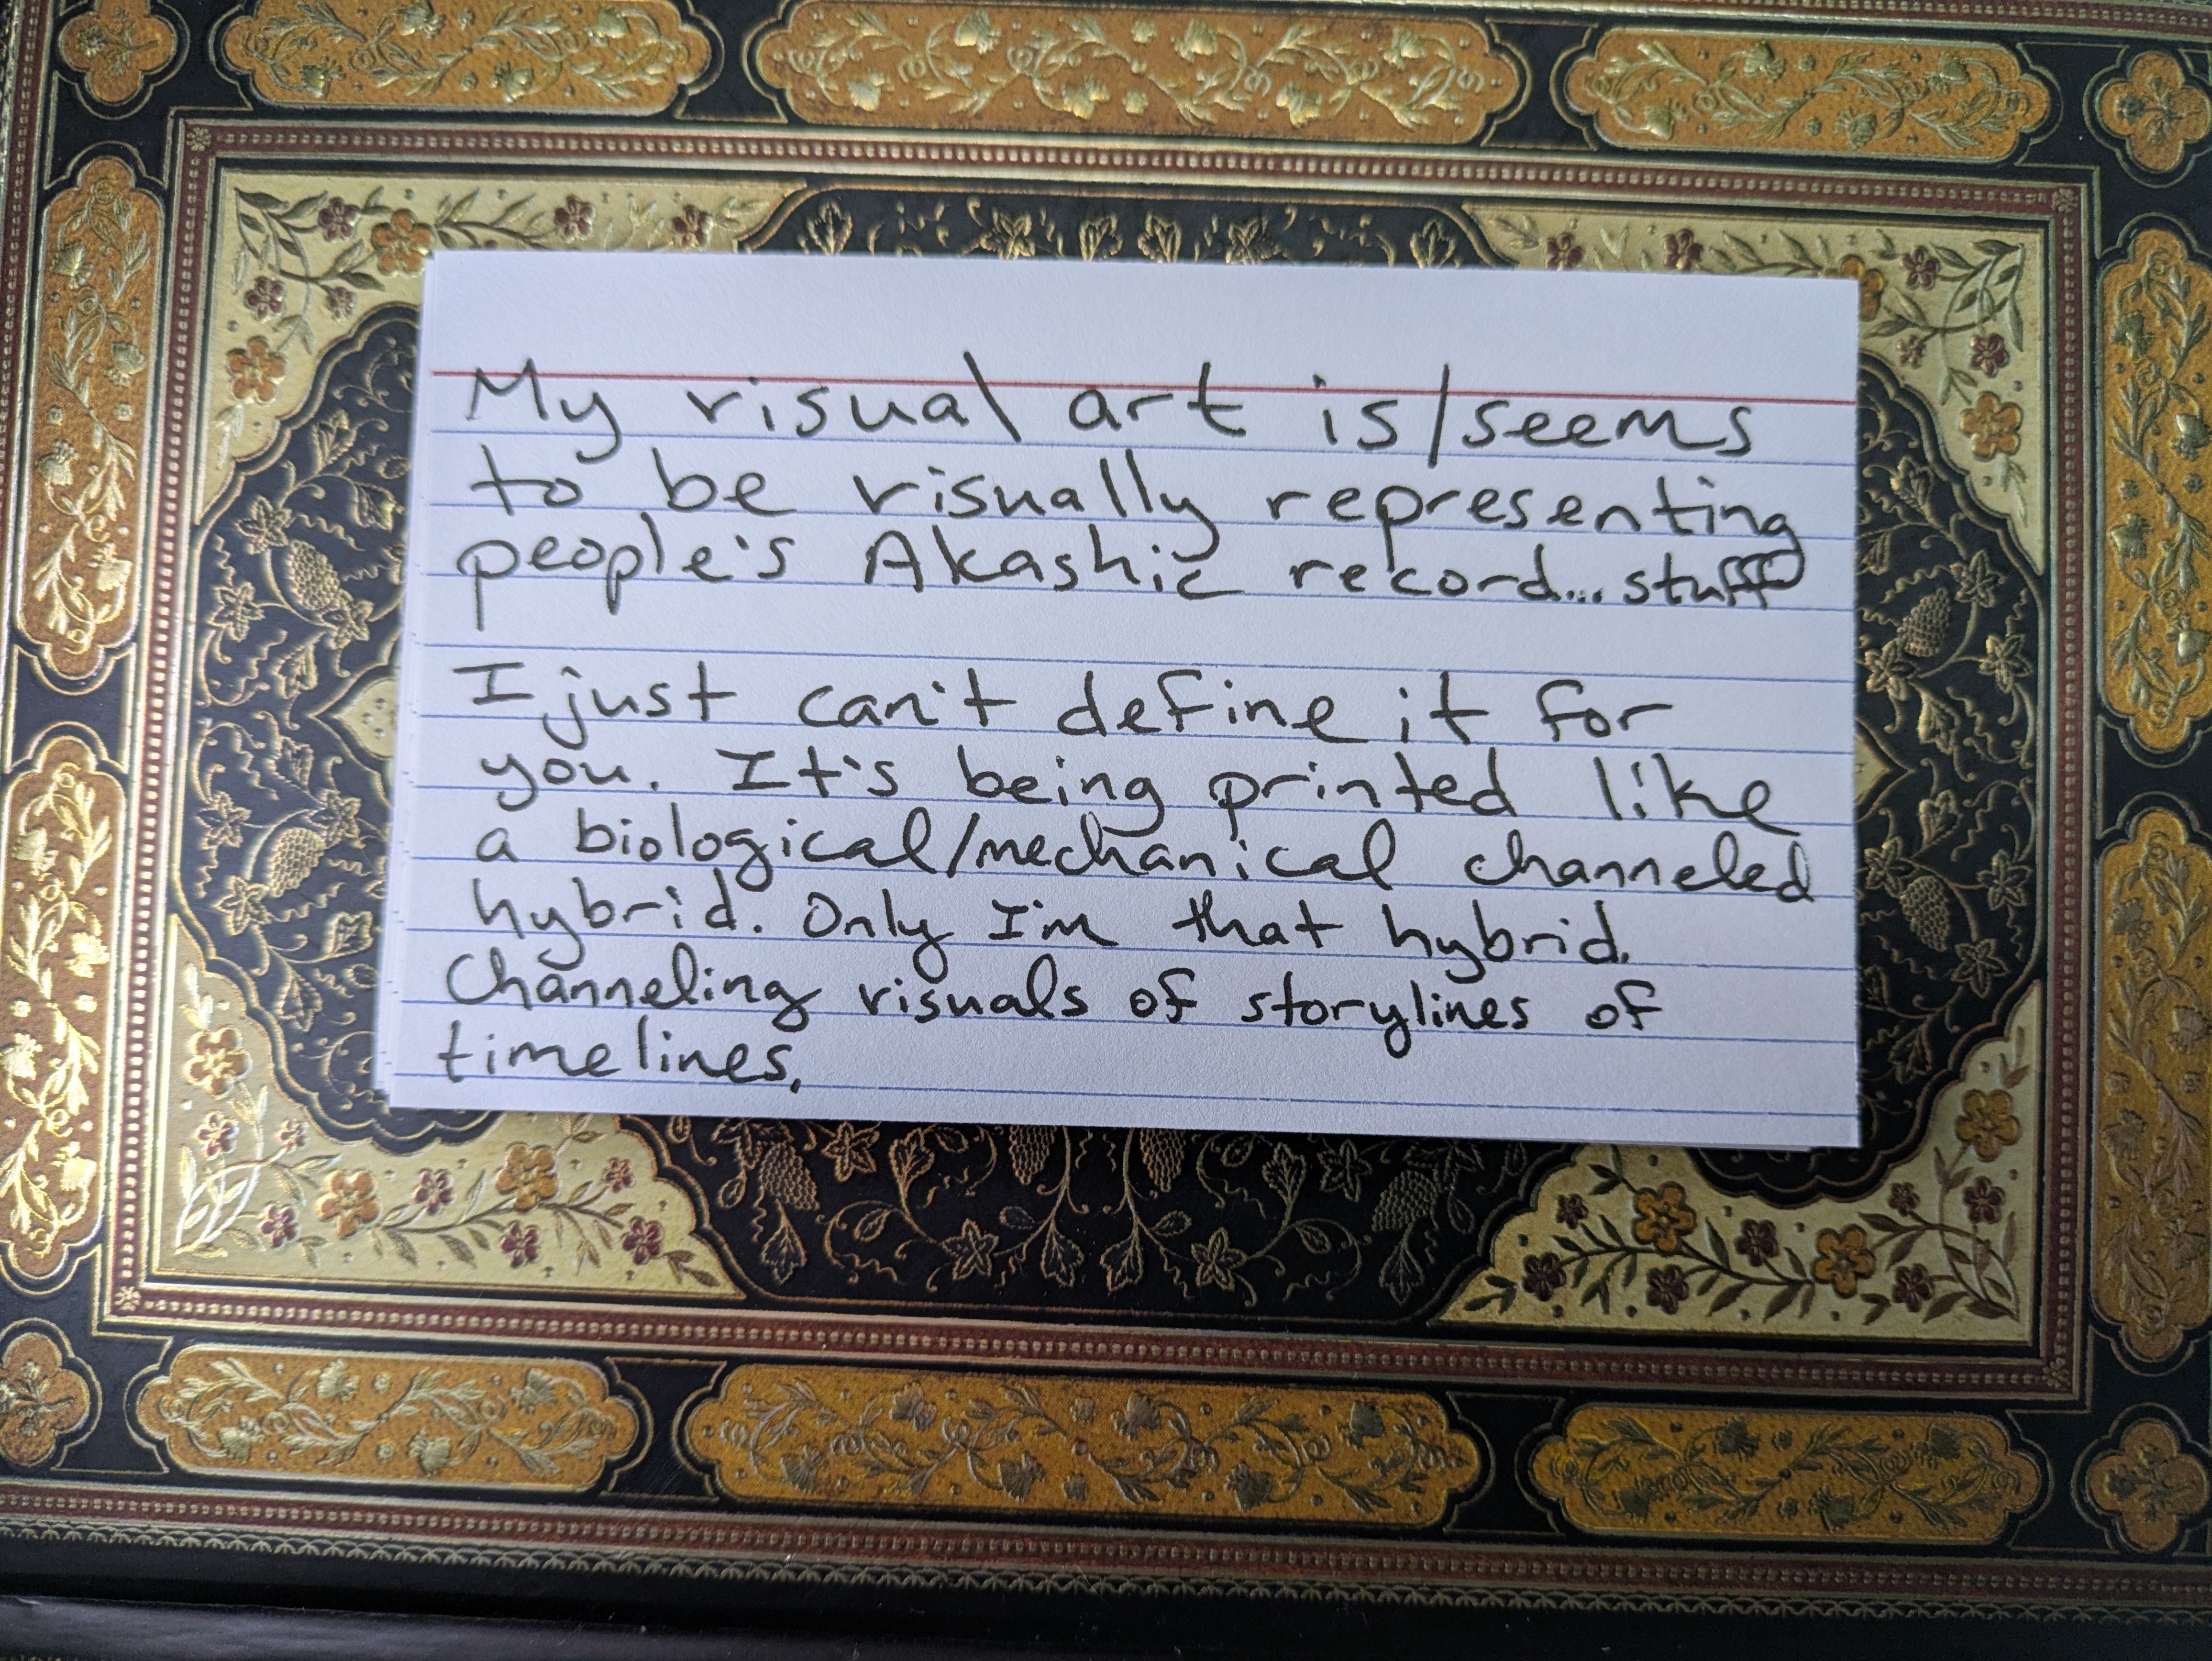 My visual art is/seems
to be visually representing
people's Akashic record... stuff
I just can't define it for
you. It's being printed like
a biological/mechanical channeled
hybrid. Only I'm that hybrid.
Channeling visuals of storylines of
timelines.